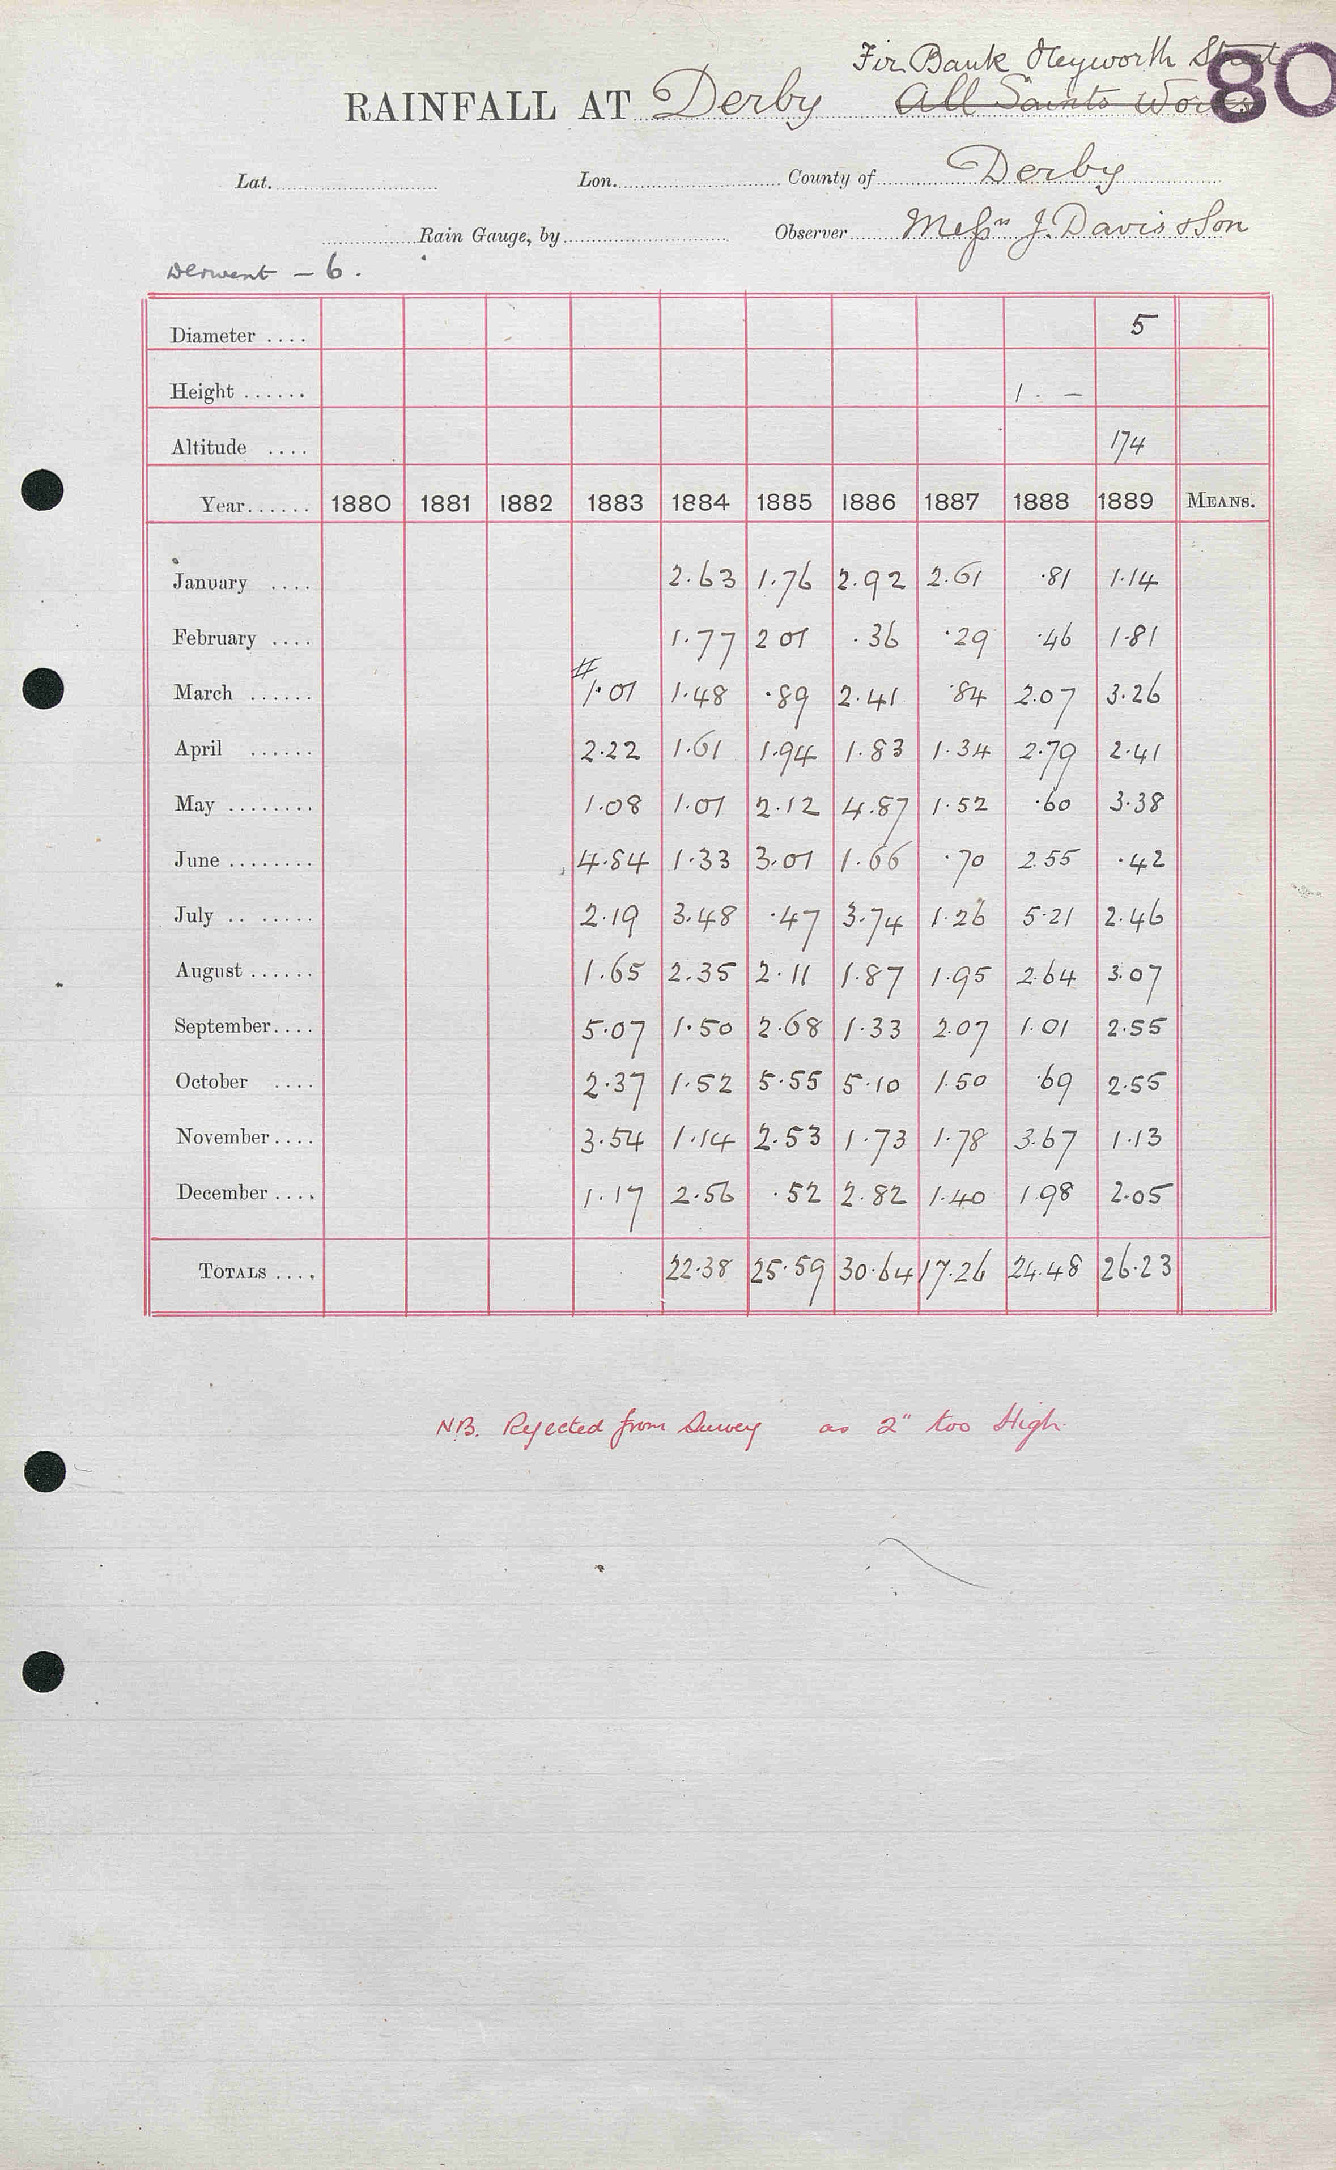 Fir Bank Heyworth Street
80
RAINFALL AT Derby All Saints Works
Lat. Lon. County of Derby
Rain Gauge, by Observer Messrs J. Davis & Son
Derwent - 6.
Diameter .... 5
Height ...... 1. -
Altitude .... 174
Year...... 1880 1881 1882 1883 1884 1885 1886 1887 1888 1889 MEANS.
January .... 2.63 1.76 2.92 2.61 .81 1.14
February .... 1.77 2 01 .36 .29 .46 1.81
March ...... # 1.01 1.48 .89 2.41 .84 2.07 3.26
April ...... 2.22 1.61 1.94 1.83 1.34 2.79 2.41
May ........ 1.08 1.01 2.12 4.87 1.52 .60 3.38
June ........ 4.84 1.33 3.01 1.66 .70 2.55 .42
July .. ..... 2.19 3.48 .47 3.74 1.26 5.21 2.46
August ...... 1.65 2.35 2.11 1.87 1.95 2.64 3.07
September.... 5.07 1.50 2.68 1.33 2.07 1.01 2.55
October .... 2.37 1.52 5.55 5.10 1.50 .69 2.55
November .... 3.54 1.14 2.53 1.73 1.78 3.67 1.13
December .... 1.17 2.56 .52 2.82 1.40 1.98 2.05
TOTALS .... 22.38 25.59 30.64 17.26 24.48 26.23
NB. Rejected from Survey as 2" too High